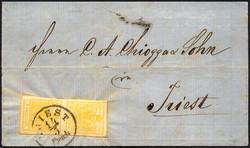 Herrn C. A. Chiogga & Sohn
in
Triest
TRIEST